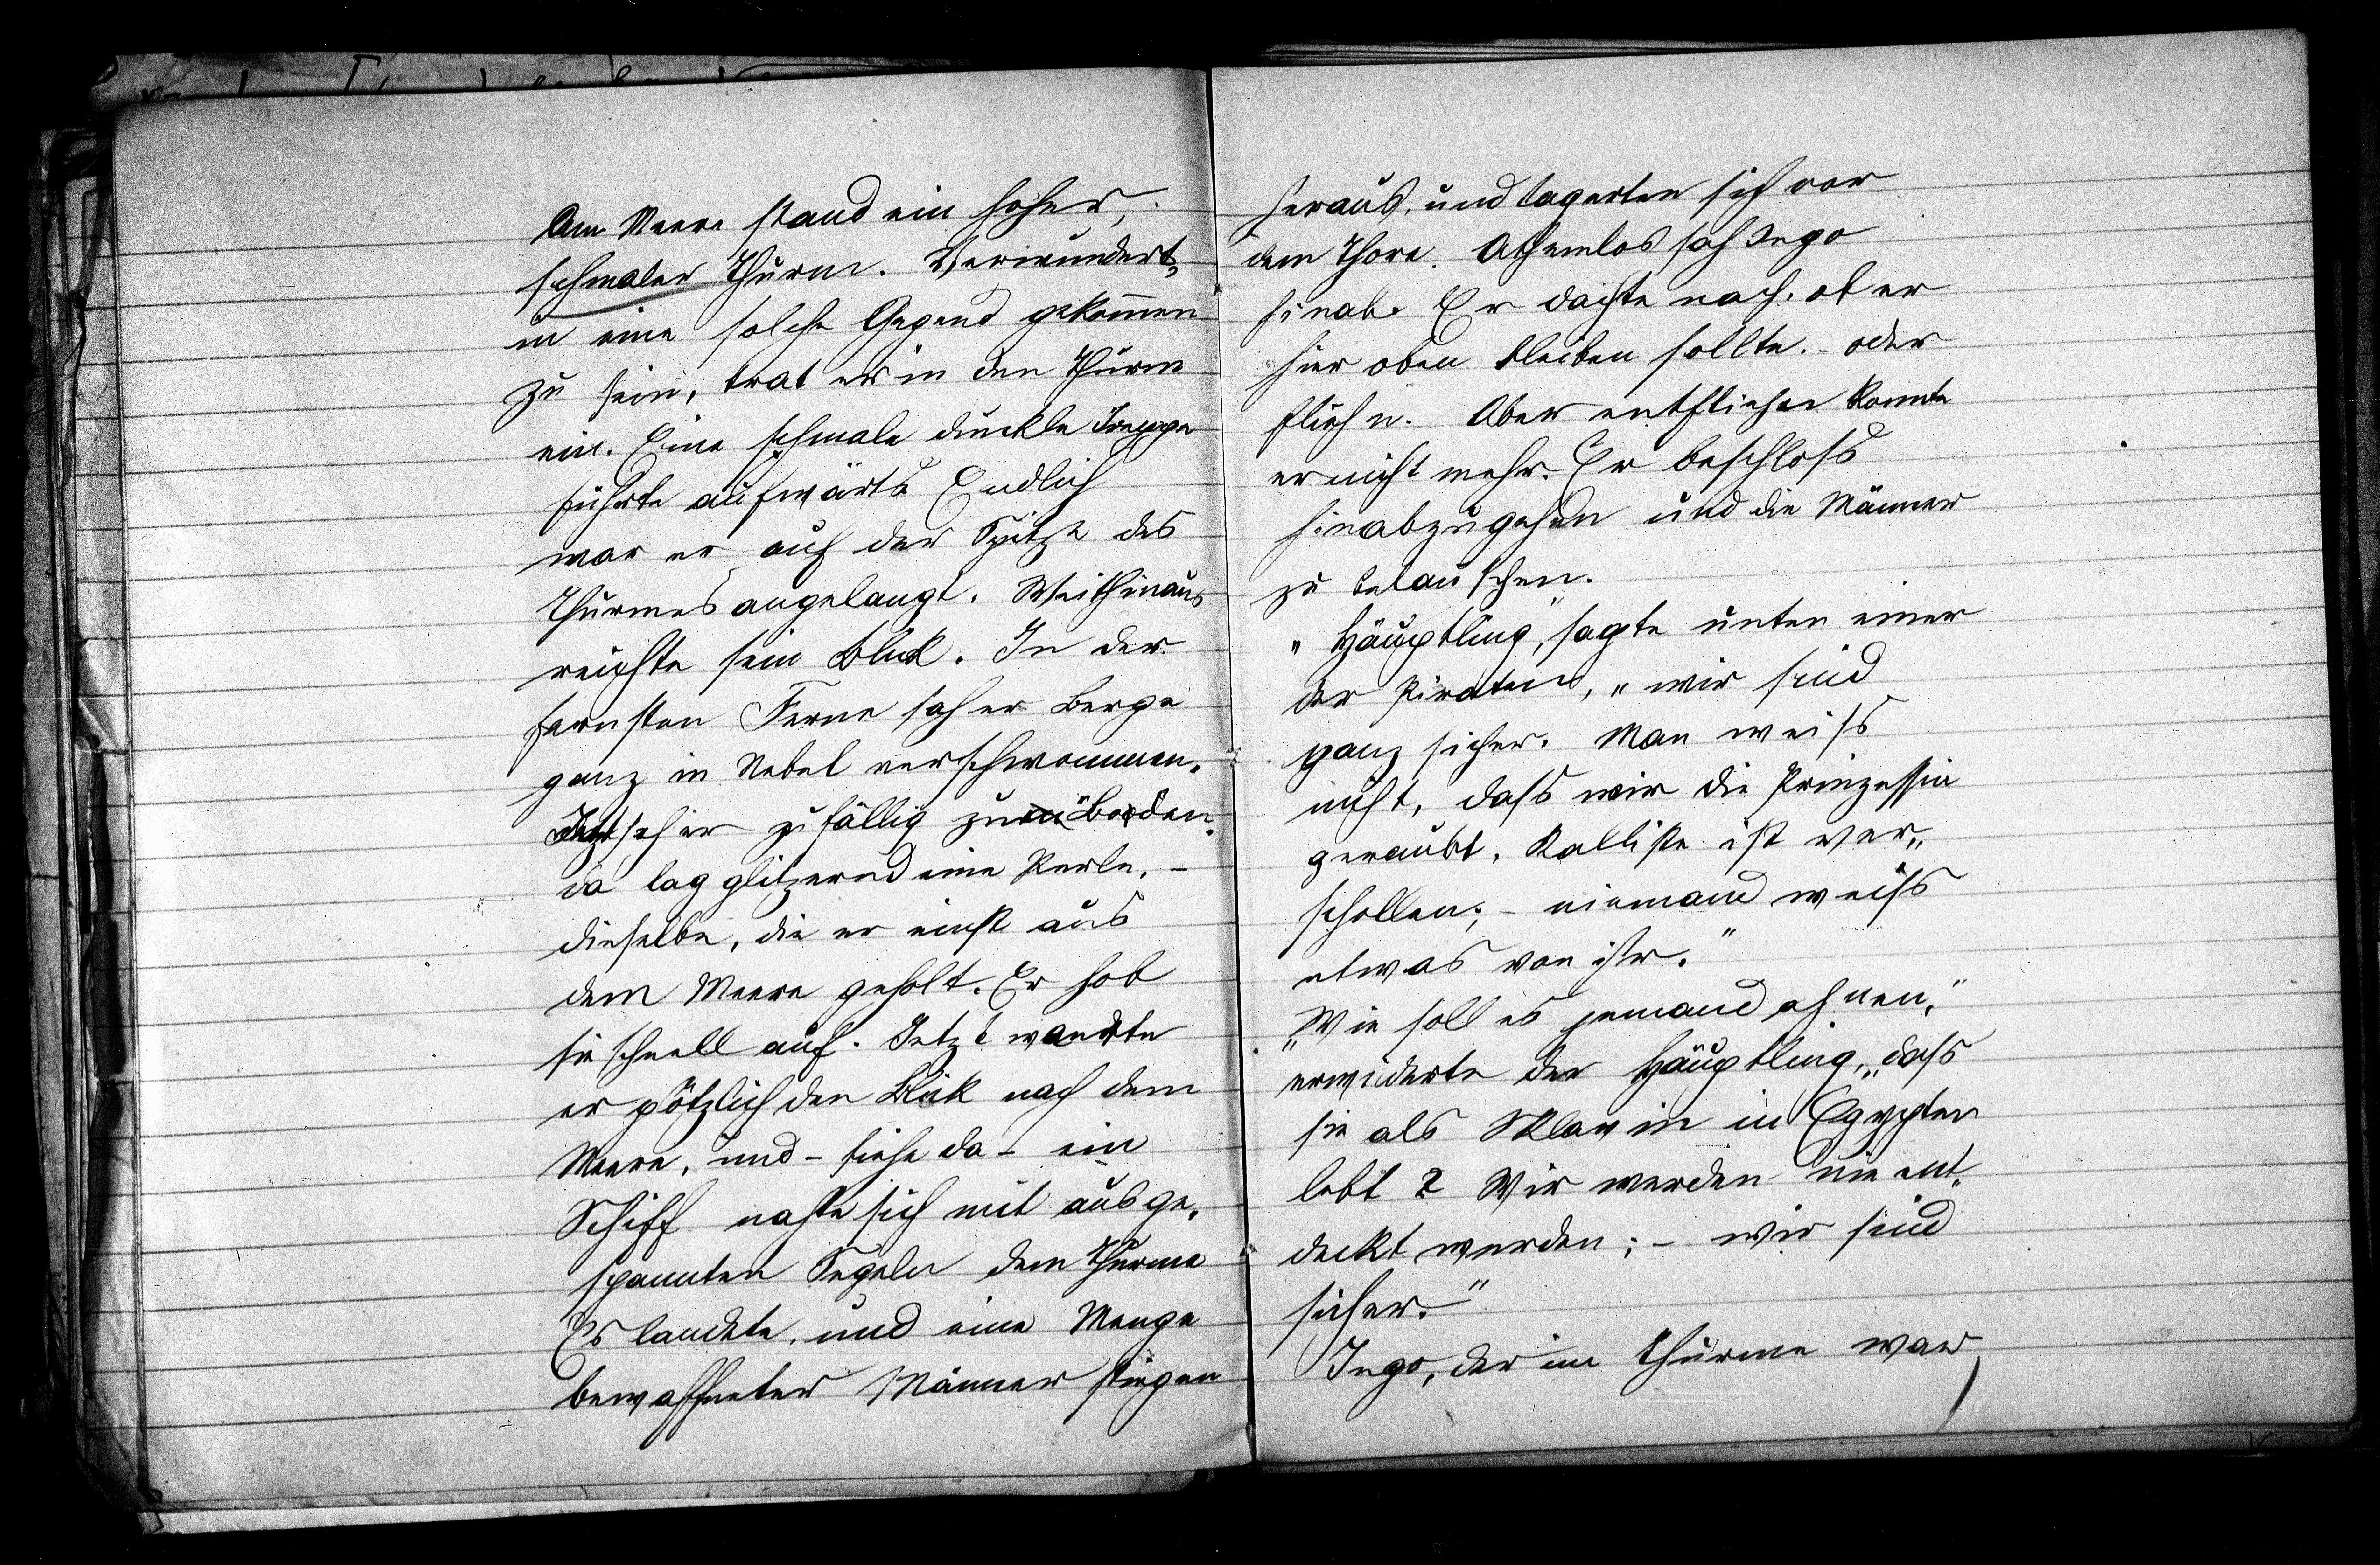 Am Meere stand ein hoher,
schmaler Thurm. Verwundert,
in eine solche Gegend gekom̄en
zu sein, trat er in den Thurm
ein. Eine schmale dunkle Treppe
führte aufwärts. Endlich
war er auf der Spitze des
Thurmes angelangt. Weithinaus
reichte sein Blick. In der
fernsten Ferne sah er Berge
ganz in Nebel verschwommen.
Jetzt sah er zufällig zu Boden.
da lag glitzernd eine Perle, –
dieselbe, die er einst aus
dem Meere geholt. Er hob
sie schnell auf. Jetzt wandte
er plötzlich den Blick nach dem
Meere, und – siehe da – ein
Schiff nahte sich mit ausge-
spannten Segeln dem Thurme
Es landete, und eine Menge
bewaffneter Männer stiegen
heraus, und lagerten sich vor
dem Thore. Athemlos sah Ingo
hinab. Er dachte nach, ob er
hier oben bleiben sollte, – oder
fliehn. Aber entfliehen konnte
er nicht mehr. Er beschloss
hinabzugehen und die Männer
zu belauschen.
„Häuptling“, sagte unten einer
der Piraten, „wir sind
ganz sicher. Man weiss
nicht, dass wir die Prinzessin
geraubt. Kalliste ist ver-
schollen; – niemand weiss
etwas von ihr.“
„Wie soll es jemand ahnen,“
erwiderte der Häuptling, „dass
sie als Sklavin in Egypten
lebt? Wir werden nie ent-
deckt werden; – wir sind
sicher.“
Ingo, der im Thurme war